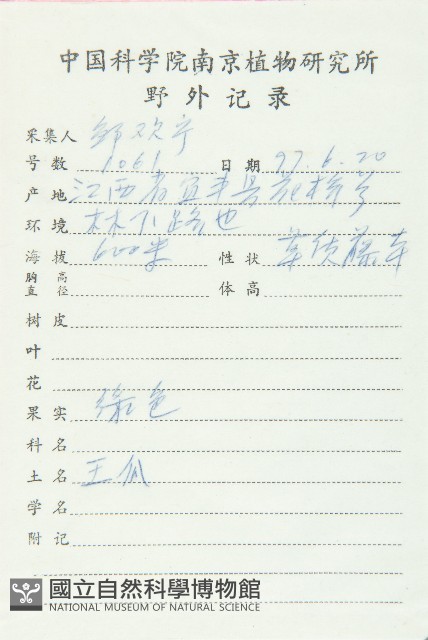 中国科学院南京植物研究所
野外记录
采集人 邹欢宁
号数 1061 日期 97.6.20
产地 江西省宜丰县花桥乡
环境 林下路边
海拔 600米 性状 草质藤本
胸高直径 体高
树皮
叶
花
果实 绿色
科名
土名 王瓜
学名
附记
國立自然科學博物館
NATIONAL MUSEUM OF NATURAL SCIENCE